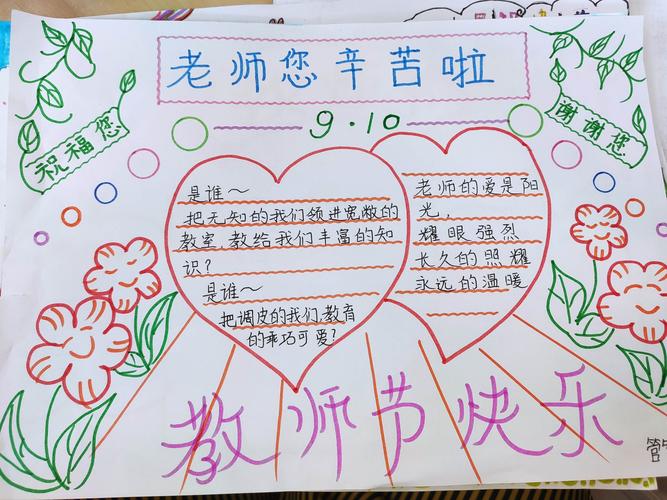 老师您辛苦啦
9·10
祝福您
谢谢您
是谁～
把无知的我们领进宽敞的
教室，教给我们丰富的知
识？
是谁～
把调皮的我们，教育
的乖巧可爱？
老师的爱是阳
光，
耀眼强烈
长久的照耀
永远的温暖
教师节快乐